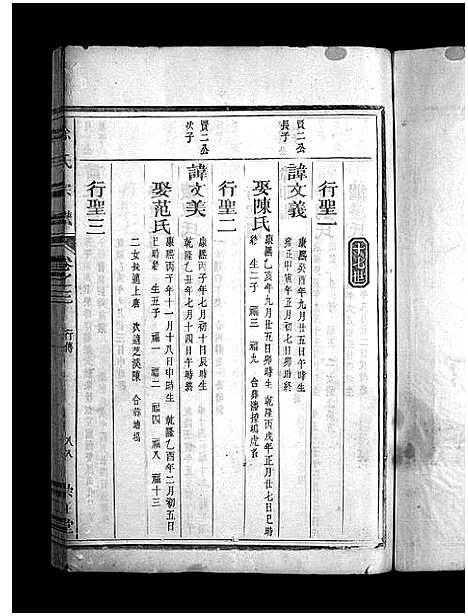 十七世
行聖一
賢二公長子
諱文義
康熙癸酉年九月廿五日午時生
雍正甲寅年正月初七日卯時終
娶陳氏
康熙乙亥年九月廿五日卯時生 乾隆丙戌年正月廿七日巳時
終 生二子 福三 福九 合葬
行聖二
賢二公次子
諱文美
康熙丙子年七月初十日辰時生
乾隆乙丑年七月十四日午時終
娶范氏
康熙丙子年十一月十八日申時生 乾隆乙酉年二月初五日
上時終 生五子 福一 福二 福四 福八 福十三
二女長適上唐 次適芝溪陳 合葬塘塢
行聖三
氏宗譜
卷之三
行傳
八八
堂